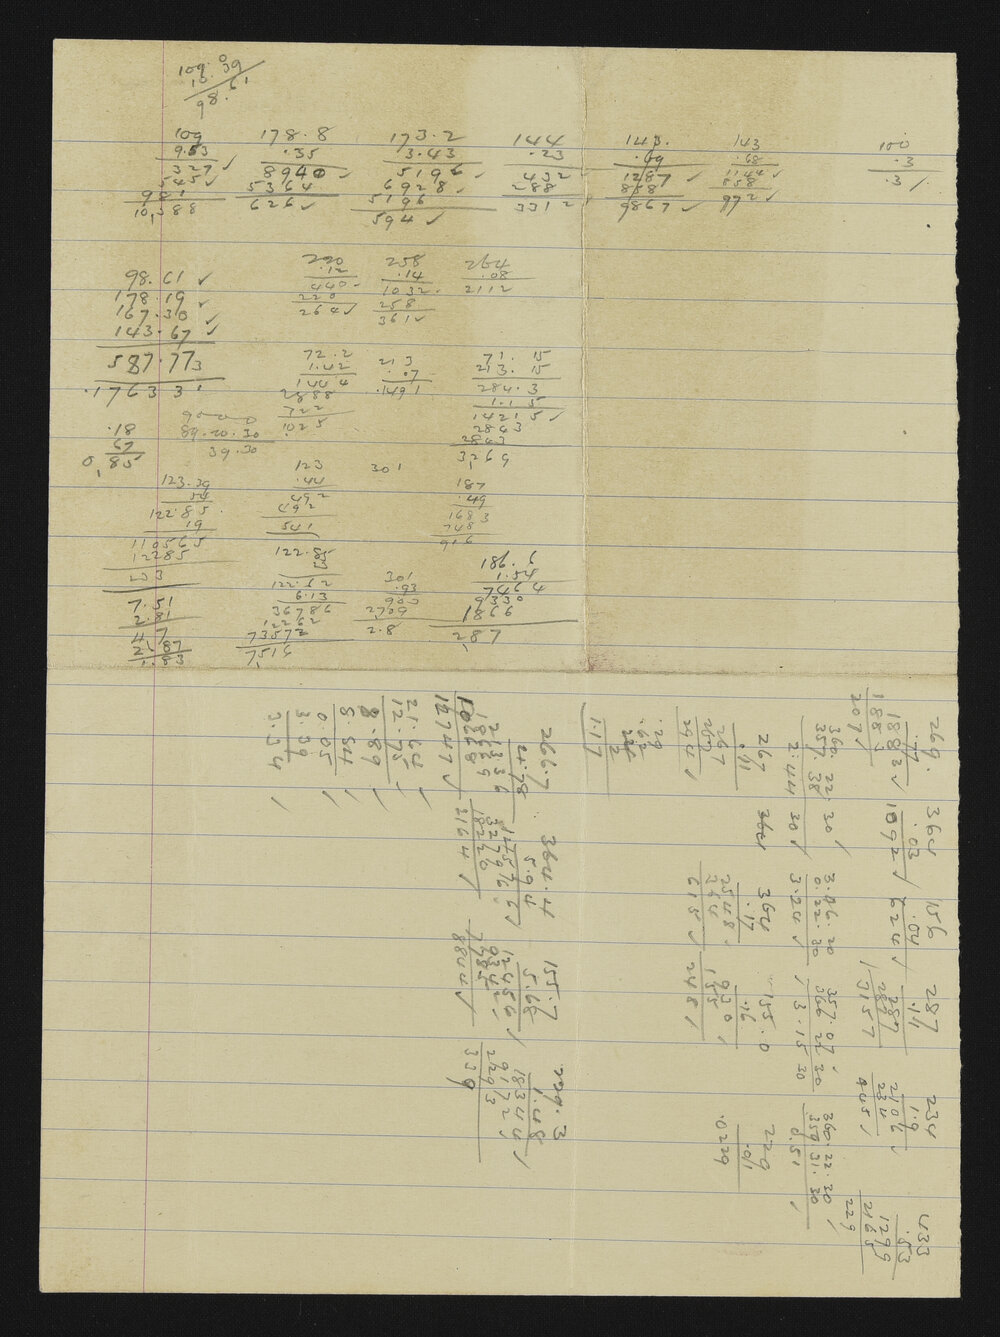 109.39
10.
98.61
109 178.8 173.2 144 143. 143 100
9.53 .35 3.43 .23 .69 .68 .3
327 ✓ 8940 ✓ 5196 ✓ 432 ✓ 1287 ✓ 1144 ✓ .3
545 ✓ 5364 6928 ✓ 288 858 858
981 626 ✓ 5196 3312 9867 ✓ 972 ✓
10,388 594 ✓
220 258 264
.12 .14 .08
440 1032 2112
220 258
264 ✓ 361 ✓
98.61 ✓
178.19 ✓
167.30 ✓
143.67 ✓
587.773
.17633
72.2 213 71.15
1.42 .07 213.15
1444 .1491 284.3
2888 1.15
722 14215 ✓
1025 2843
2843
3269
.18
67
0,85
89.20.30
39.30
123 301 187
.44 .49
492 1683
492 748
541 916
123.39
54
122.85
19
110565
12285
233
122.85
122.62
6.13
36786
12262
73572
7516
301
.93
903
2709
2.8
186.6
1.54
7464
9330
1866
287
7.51
2.81
4.7
2.87
1.83
269. 364 156 287 234 433
.7 .03 .04 .11 1.9 .53
1883 ✓ 1092 ✓ 624 ✓ 287 2106 ✓ 1299
1883 287 234 2165
207 ✓ 3157 445 ✓ 229
360.22.30 ✓ 3.46.20 357.07 360.22.20
357.38 0.22.30 360.22.20 359.31.30
2.44.30 ✓ 3.24 ✓ 3.15.30 0.51 ✓
267 364 155.0 229
.11 .17 .16 .01
267 2548 930 .0229
267 364 155
294 ✓ 618 ✓ 248 ✓
.29
.62
2
117
266.7 364.4 155.7 229.3
4.78 5.94 5.68 1.48
21336 14576 ✓ 12456 ✓ 18344 ✓
18669 32796 9342 9172
10668 18220 7785 2293
12747 ✓ 2164 ✓ 884 ✓ 339
21.64 ✓
12.75 ✓
8.89 ✓
8.84 ✓
0.05 ✓
3.39
3.34 ✓